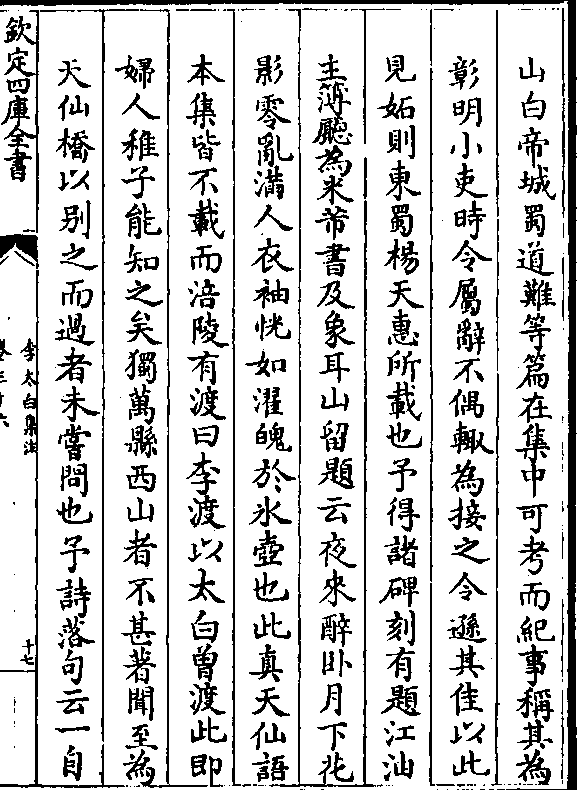 山白帝城蜀道難等篇在集中可考而紀事稱其為
彰明小吏時令屬辭不偶輙為接之令遜其佳以此
見妬則東蜀楊天惠所載也予得諸碑刻有題江油
主簿廳為米芾書及象耳山留題云夜來醉卧月下花
影零亂滿人衣袖恍如濯魄於氷壺也此真天仙語
本集皆不載而涪陵有渡曰李渡以太白曾渡此即
婦人稚子能知之矣獨萬縣西山者不甚著聞至為
天仙橋以别之而過者未嘗問也予詩落句云一自
欽定四庫全書
李太白集注
卷三十六
十七